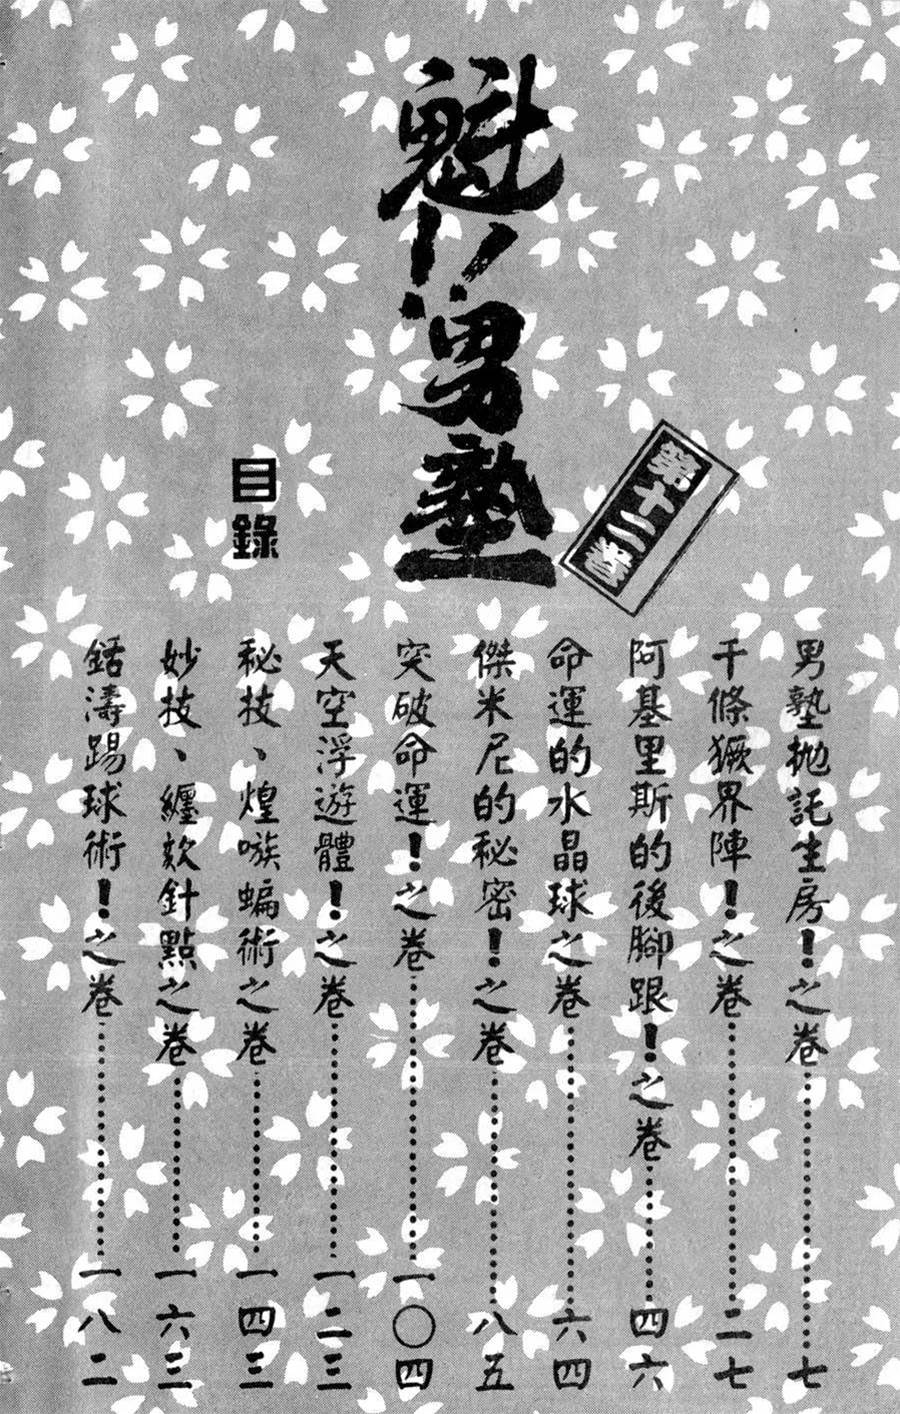 魁!!男塾
第十二卷
目錄
男塾拋託生房!之卷……七
千條獗界陣!之卷……二七
阿基里斯的後腳跟!之卷……四六
命運的水晶球之卷……六四
傑米尼的秘密!之卷……八五
突破命運!之卷……一〇四
天空浮遊體!之卷……一二三
秘技、煌嗾蝙術之卷……一四三
妙技、纏欬針點之卷……一六三
鋙濤踢球術!之卷……一八二